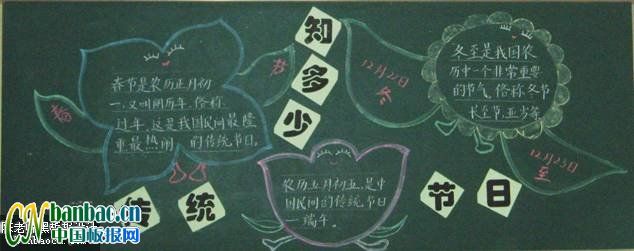 知
多
少
传统
节日
春
节
春节是农历正月初
一,又叫阴历年,俗称
过年,这是我国民间最隆
重最热闹的传统节日。
12月22日
冬
12月23日
至
冬至是我国农
历中一个非常重要
的节气,俗称冬节
长至节,亚岁等
农历五月初五,是中
国民间的传统节日
—端午。
CNbanbao.cn
中国板报网